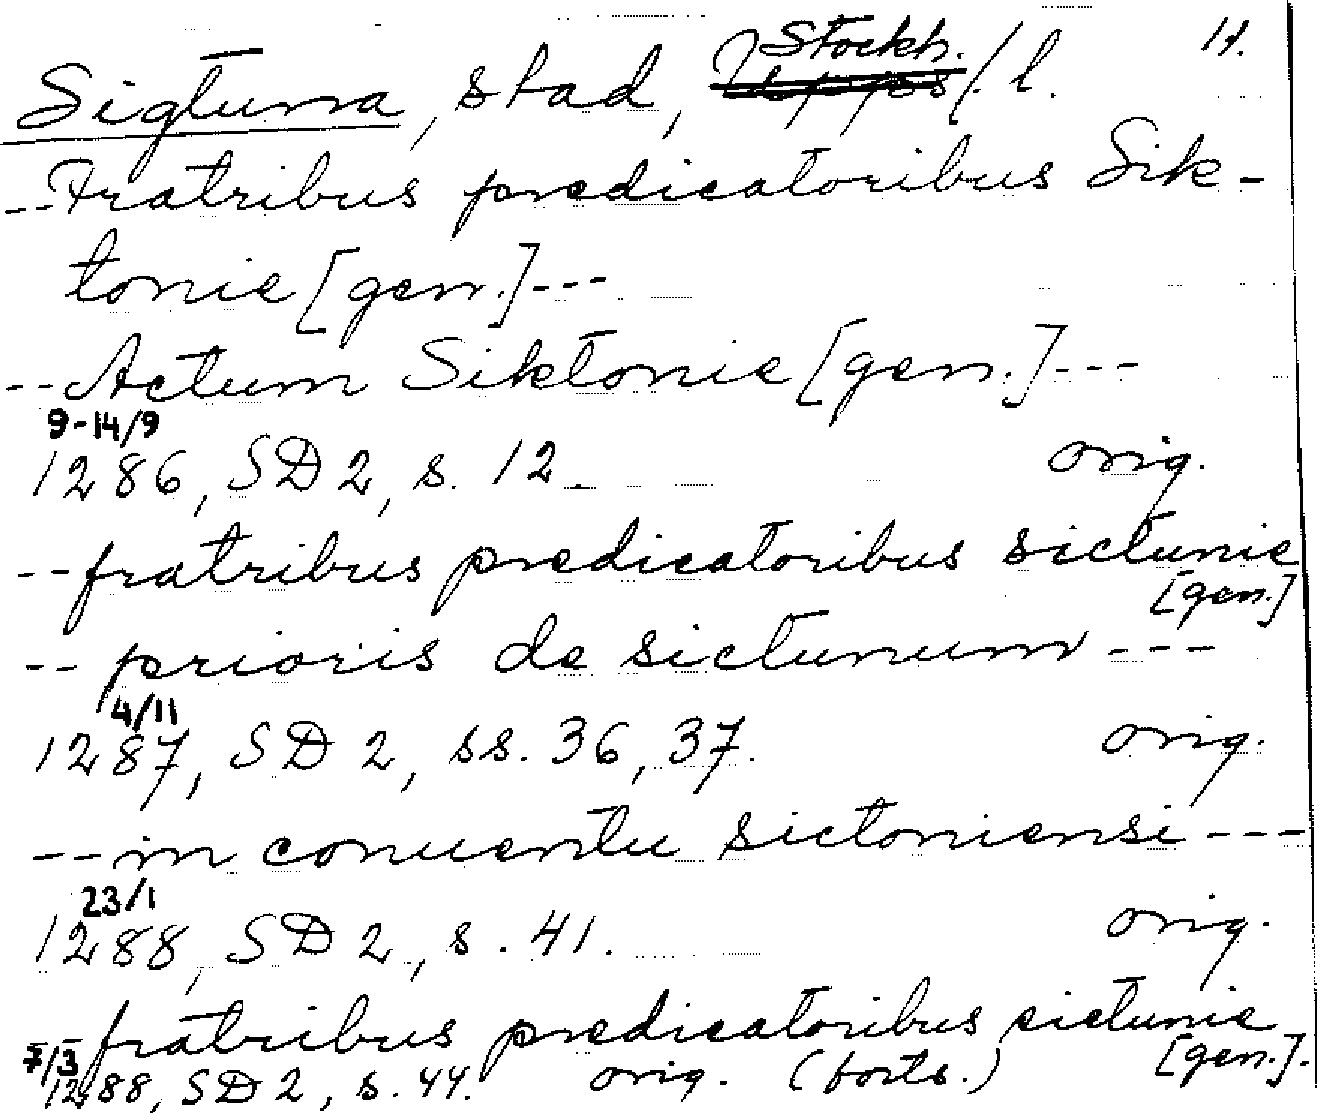 Sigtuna, stad, Stockh. l. 11.
--Fratribus predicatoribus Sik-
tonie [gen.]---
--Actum Siktonie [gen.]---
9-14/9
1286, SD 2, s. 12. orig.
--fratribus predicatoribus sictunie
[gen.]
-- prioris de sictunum ---
4/11
1287, SD 2, ss. 36, 37. orig.
--in conuentu sictoniensi---
23/1
1288, SD 2, s. 41. orig.
--fratribus predicatoribus sictunie
7/3 [gen.].
1288, SD 2, s. 44. orig. (forts.)